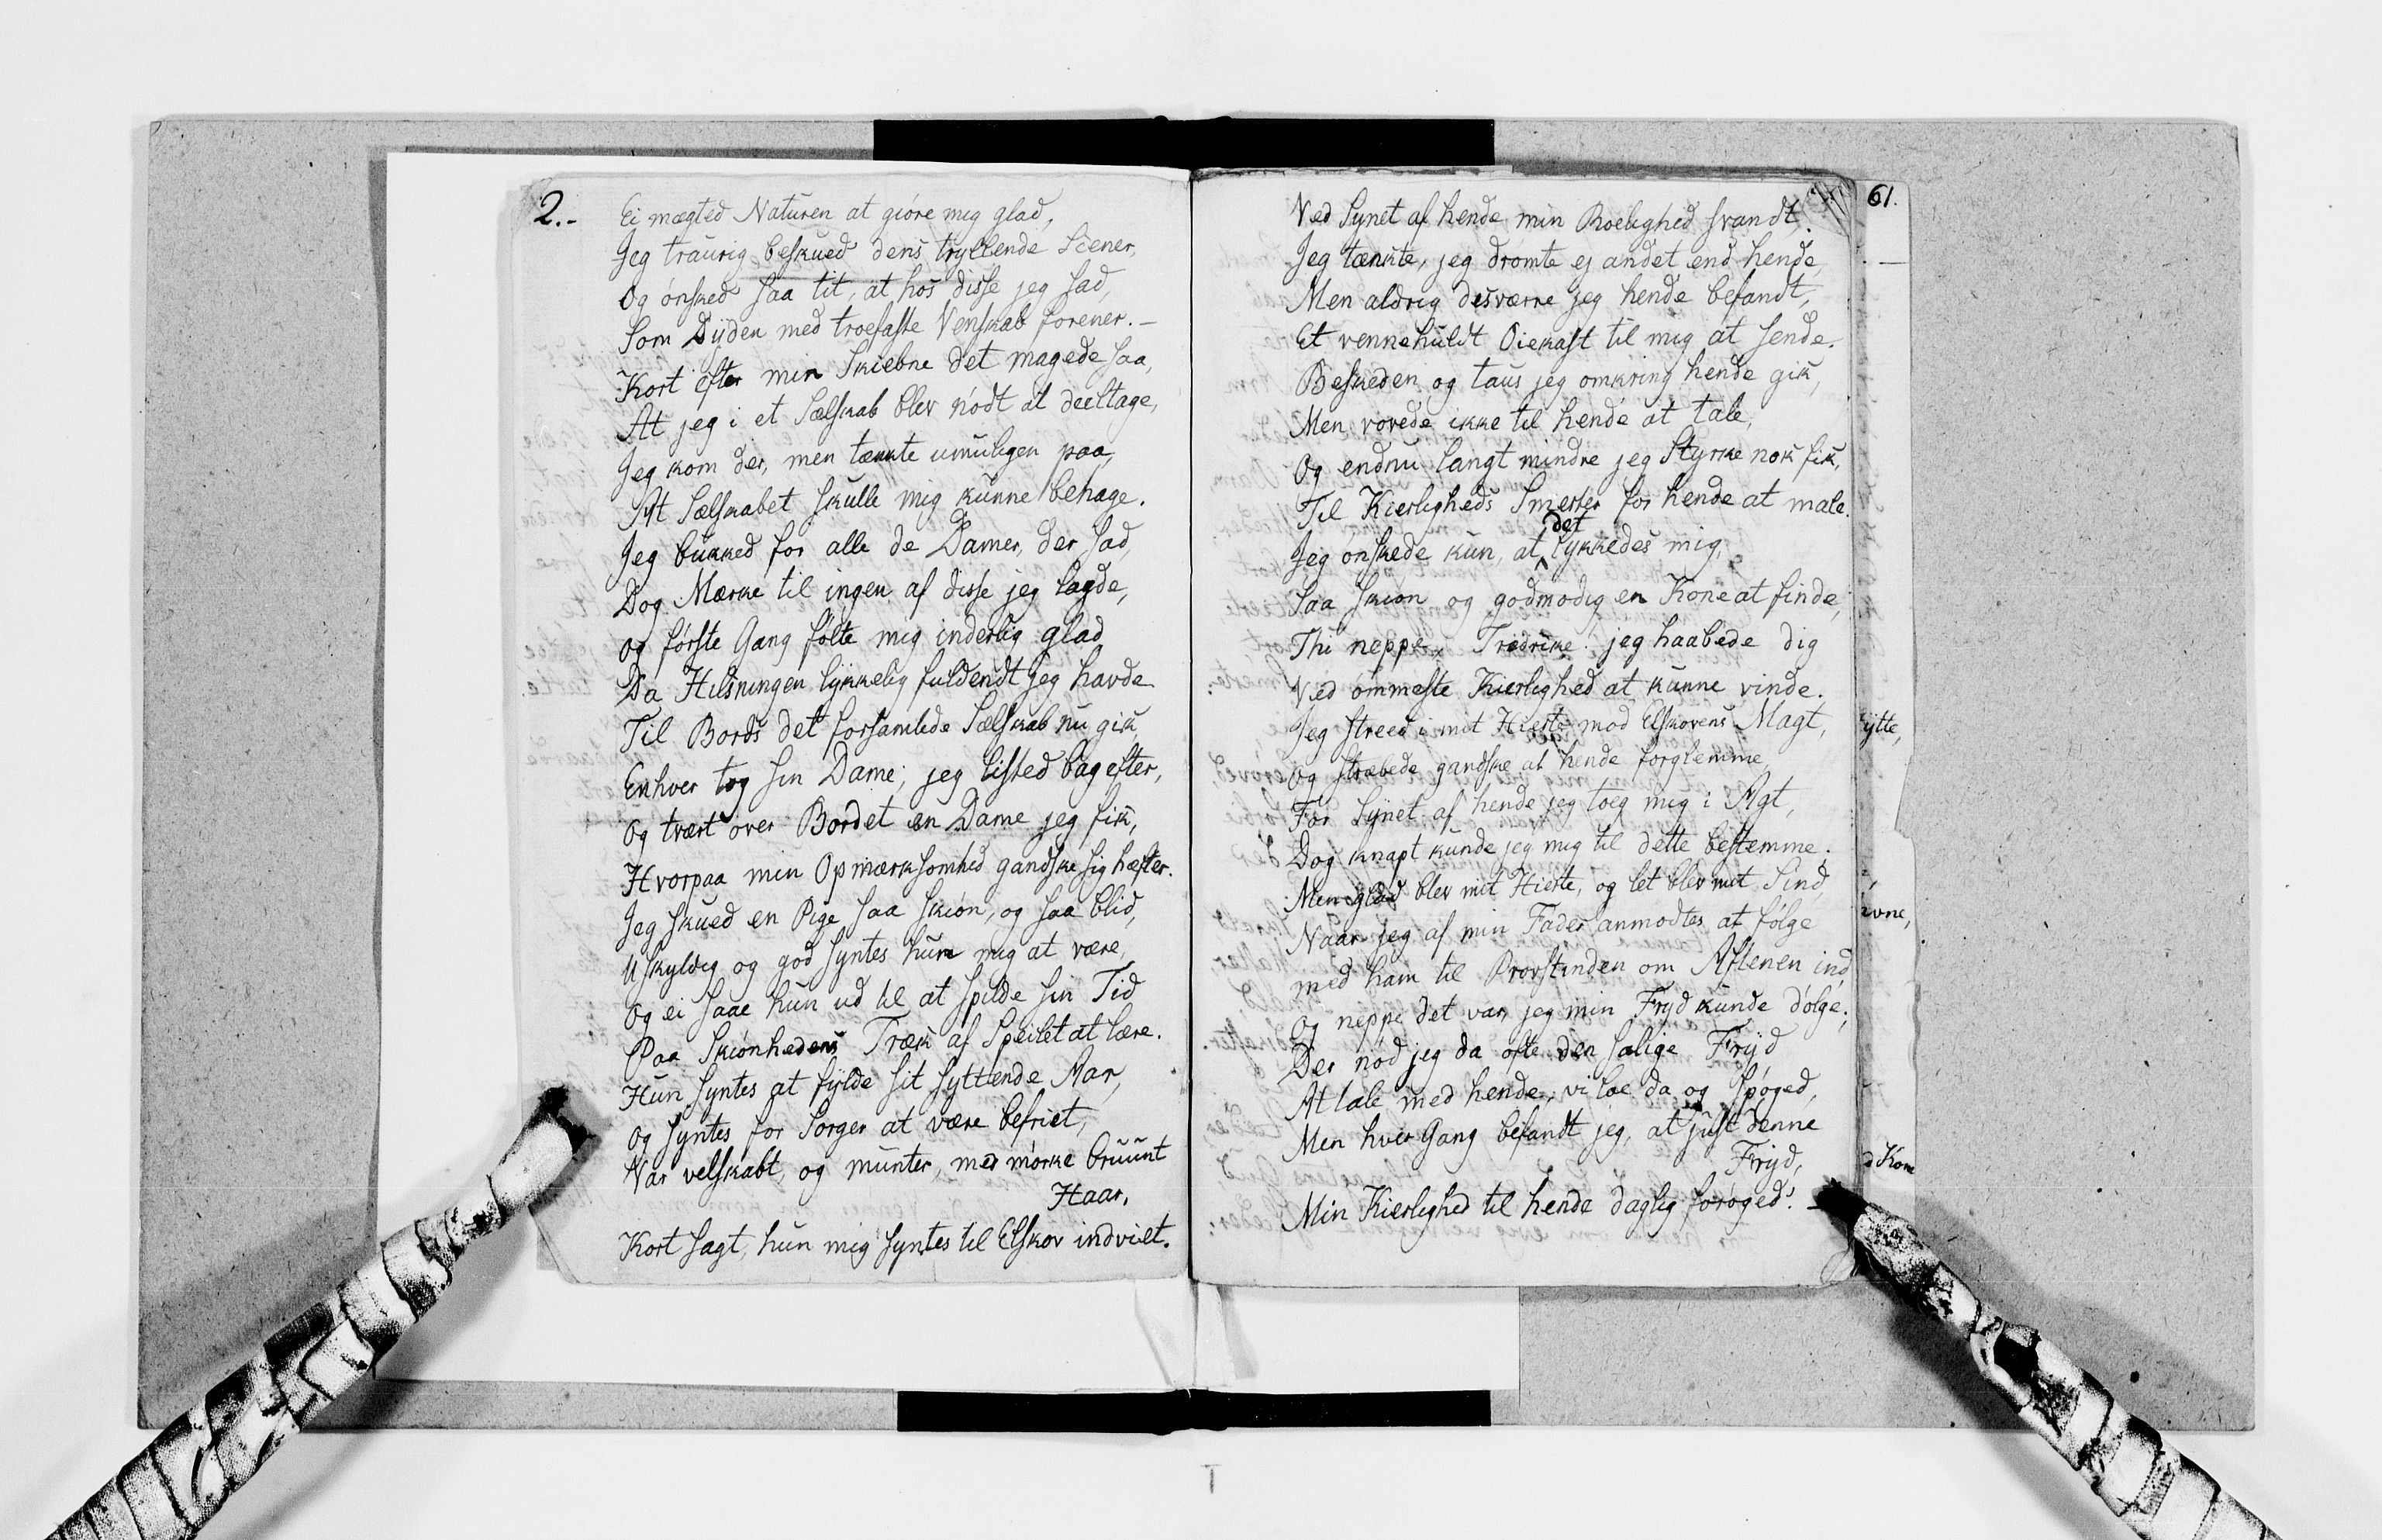 2.-
Ei mægted Naturen at giøre mig glad,
Jeg traurig beskued dens tryllende Scener,
Og ønsked saa tit, at hos disse jeg sad,
Som Dyden med troefaste Venskab forener. -
Kort efter min Skiebne det magede saa,
At jeg i et Sælskab blev nødt at deeltage,
Jeg kom der, men tænkte umuligen paa,
At Sælskabet skulle mig kunne behage.
Jeg bukked for alle de Damer, der sad,
Dog Mærke til ingen af disse jeg lagde,
og første Gang følte mig inderlig glad
Da Hilsningen lykkelig fuldendt jeg havde
Til Bords det forsamlede Sælskab nu gik,
Enhver tog sin Dame, jeg listed bag efter,
og tvært over Bordet en Dame jeg fik,
Hvorpaa min Opmærksomhed gandske sig hæfter.
Jeg skued en Pige saa skiøn, og saa blid,
Uskyldig og god syntes hun mig at være,
Og ei saae hun ud til at spilde sin Tid
Paa Skiønhedens Træk af Speilet at lære.
Hun syntes at fylde sit syttende Aar,
og syntes for Sorger at være befriet,
Var velskabt, og munter, med mørke bruunt
Haar,
Kort sagt, hun mig syntes til Elskov indviet.
61.
Ved Synet af hende min Roelighed svandt,
Jeg tænkte, jeg drømte ej andet end hende,
Men aldrig desværre jeg hende befandt,
Et vennehuldt Øiekast til mig at sende.
Beskeden og taus jeg omkring hende gik,
Men vovede ikke til hende at tale,
Og endnu langt mindre jeg Styrke nok fik,
Til Kierligheds Smerter for hende at male.
det
Jeg ønskede kun, at lykkedes mig,
Saa skiøn og godmodig en Kone at finde,
Thi neppe, Fredrike! jeg haabede dig
Ved ømmeste Kierlighed at kunne vinde.
Jeg streed i mit Hierte mod Elskovens Magt,
og stræbede gandske at hende forglemme,
For Synet af hende jeg toeg mig i Agt,
Dog knapt kunde jeg mig til dette bestemme.
Men glad blev mit Hierte, og let blev mit Sind,
Naar jeg af min Fader anmodtes at følge
med ham til Provstinden om Aftenen ind,
og neppe det var, jeg min Fryd kunde dølge.
Der nød jeg da ofte den salige Fryd
At tale med hende, vi loe da og spøged,
Men hver Gang befandt jeg, at just denne
Fryd,
Min Kierlighed til hende daglig forøged! -
ytte,
evne,
d Kom